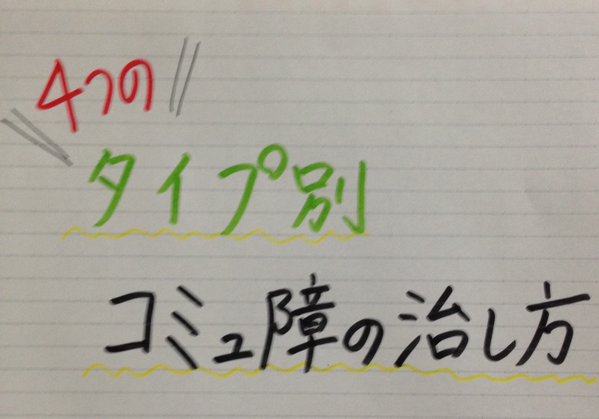 4つの
タイプ別
コミュ障の治し方